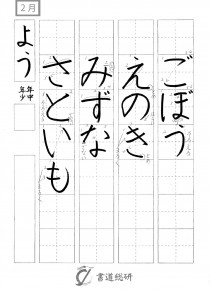 2月
ごぼう
えのき
みずな
さといも
よう
年中
年少
書道総研